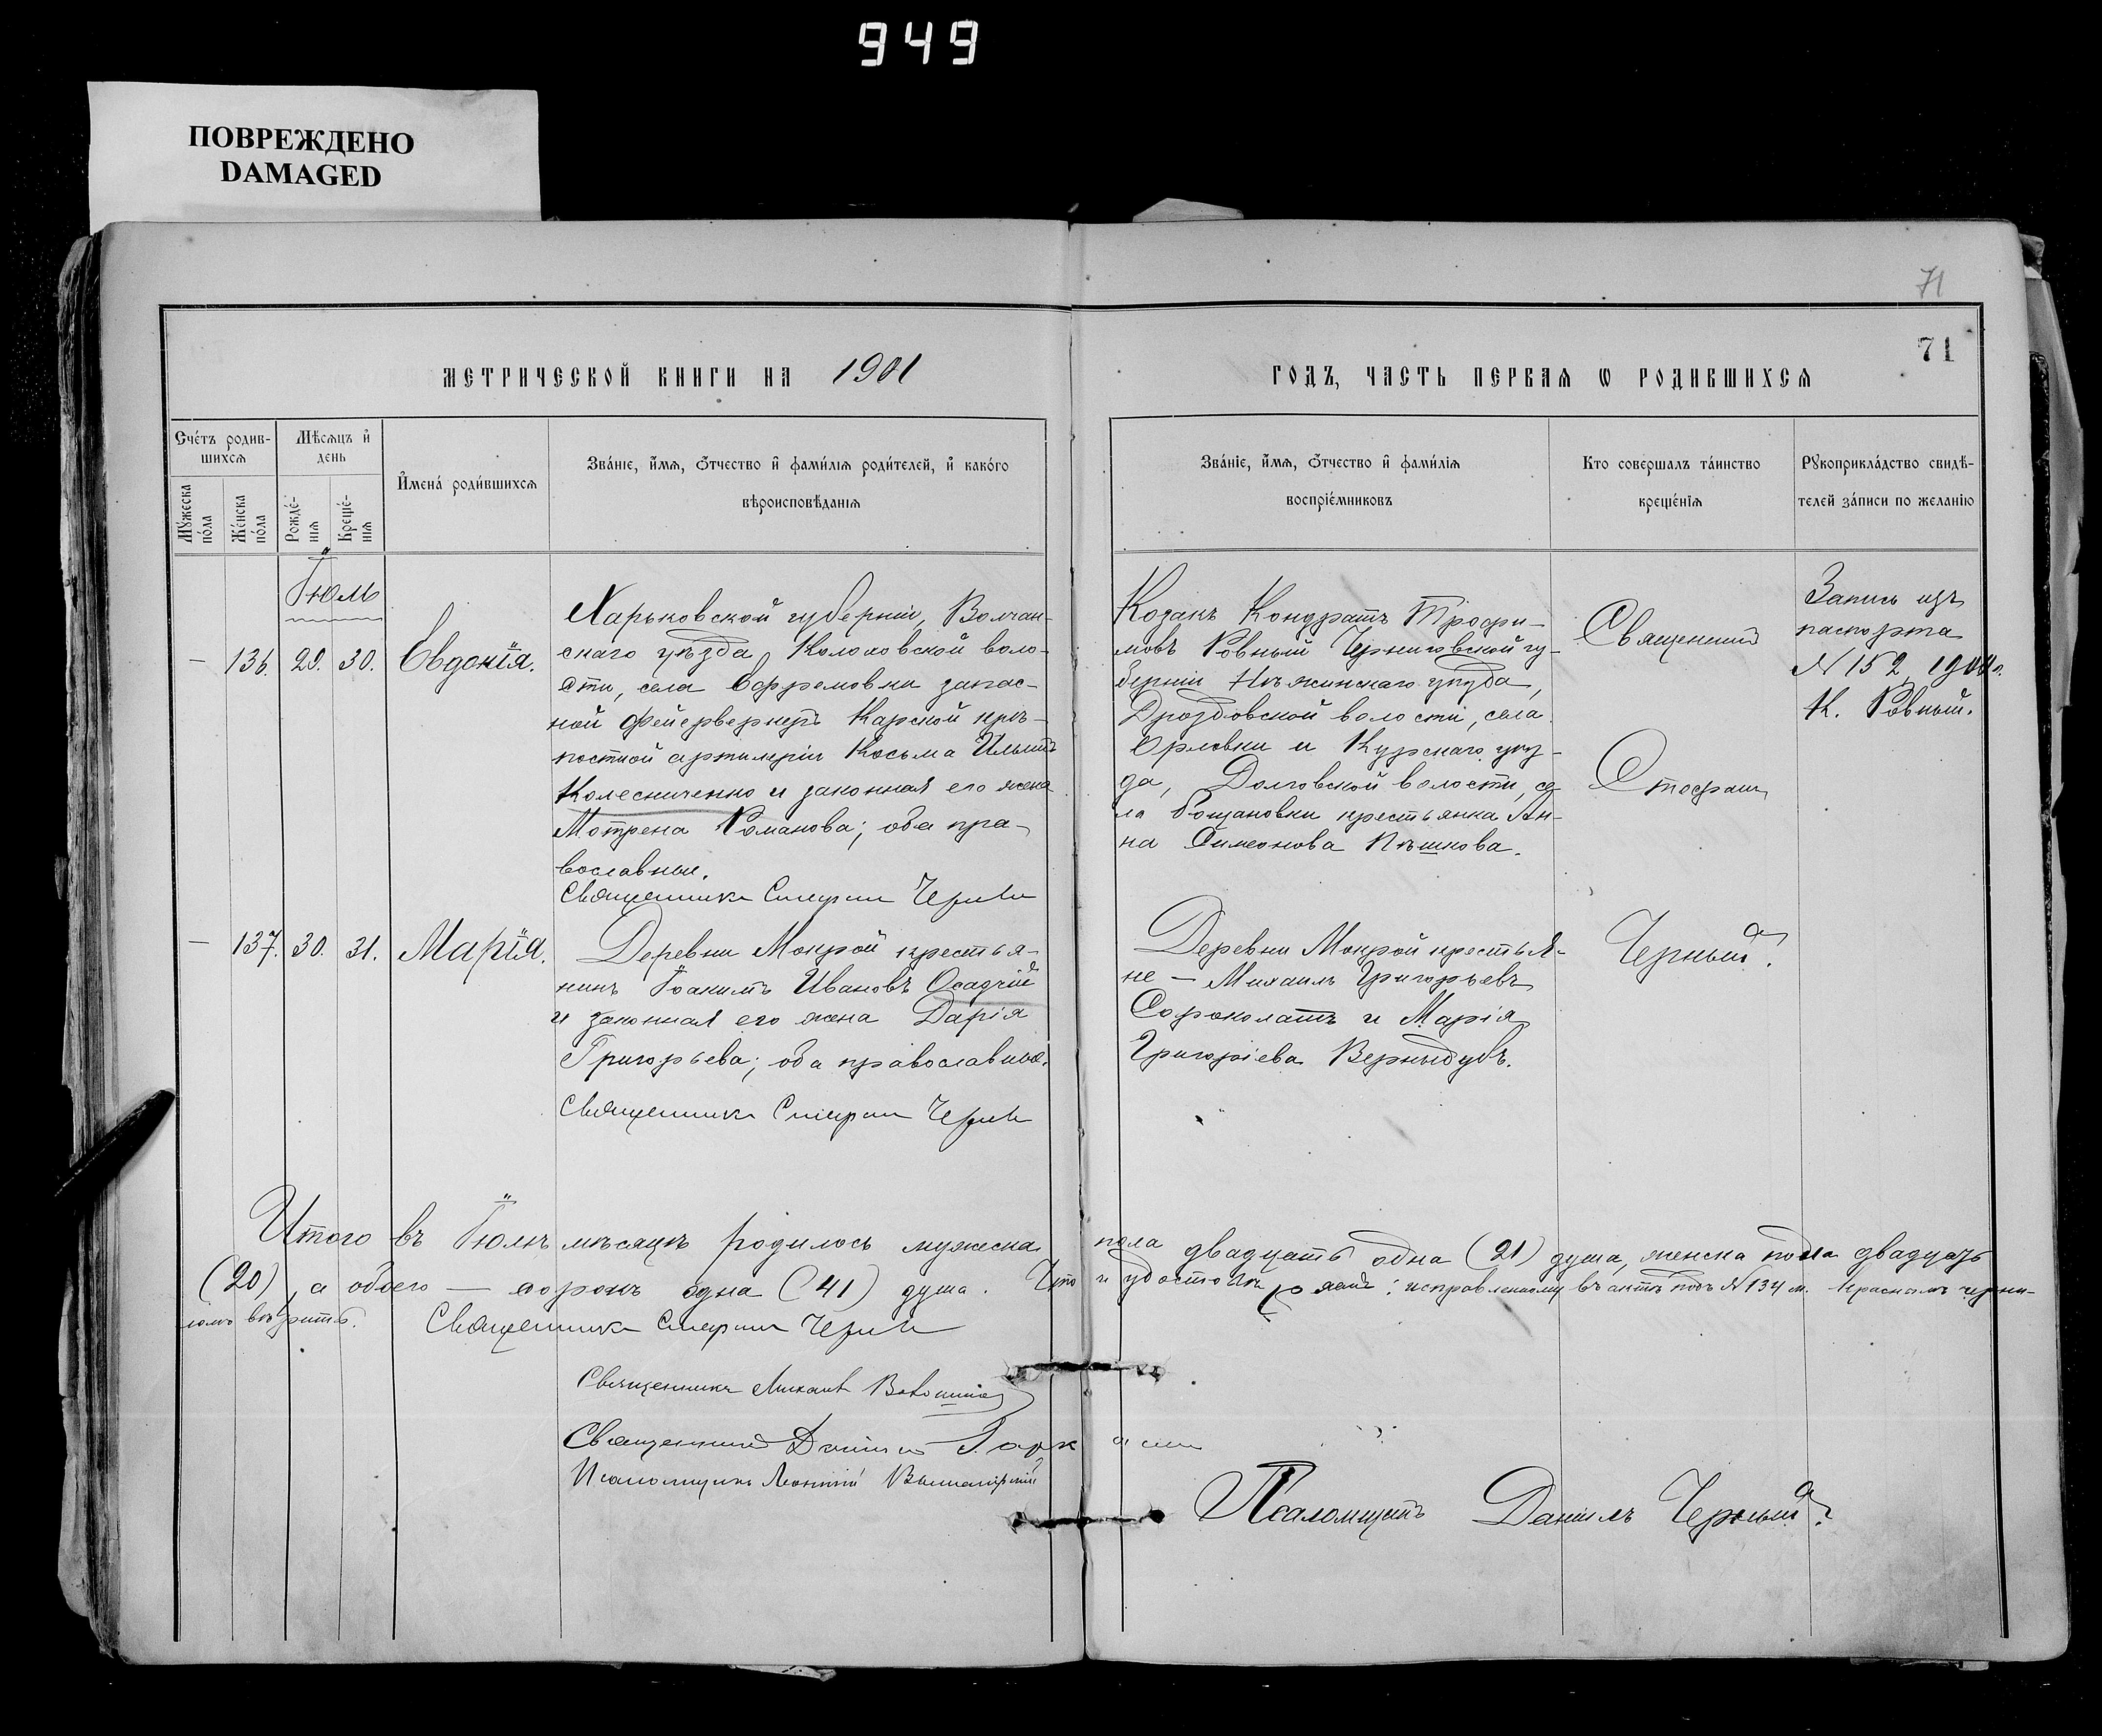 949
ПОВРЕЖДЕНО
DAMAGED
71
71
МЕТРИЧЕСКОЙ КНИГИ НА 1901
ГОДЪ, ЧАСТЬ ПЕРВАЯ Ѡ РОДИВШИХСЯ
Счетъ родив-
шихся
Мужеска пола
Женска пола
Мѣсяцъ и
день
Рожде-
нія
Креще-
нія
Имена родившихся
Званіе, имя, отчество и фамилія родителей, и какого
вѣроисповѣданія
Званіе, имя, отчество и фамилія
воспріемниковъ
Кто совершалъ таинство
крещенія
Рукоприкладство свидѣ-
телей записи по желанію
Іюль
– 136. 29. 30. Евдокія.
Харьковской губерніи, Волчан-
скаго уѣзда, воло-
сти, села Ефремовки запас-
ной фейерверкеръ Карской крѣ-
постной артилеріи Косьма Ильинъ
Колесниченко и законная его жена
Мотрена Романова; оба пра-
вославные.
Священникъ Стефанъ
Козакъ Кондратъ Трофи-
мовъ Ровный Черниговской гу-
берніи Нѣжинскаго уѣзда,
Дроздовской волости, села
Орловки и Курскаго уѣз-
да, Долговской волости, се
ла крестьянка Ан-
на Симеонова Пѣшкова.
Священний
Стефанъ
Черный.
Запись изъ
паспорта
№ 152
К. Ровный.
– 137. 30. 31. Марія.
Деревни Мокрой крестья-
нинъ Іоакимъ Ивановъ Осадчій
и законная его жена Дарія
Григорьева; оба православные.
Священникъ Стефанъ
Деревни Мокрой крестья-
не – Михаилъ Григорьевъ
Сороколатъ и Марія
Григоріева Вернидубъ.
Итого въ Іюлѣ мѣсяцѣ родилось мужеска пола двадцать одна (21) душа, женска пола двадцать
(20), а обоего — сорокъ одна (41) душа. исправленному въ актѣ подъ № 134 м. краснымъ черни-
ломъ вѣрить. Священникъ Стефанъ
Священникъ Михаилъ
Священникъ
Псаломщикъ
Псаломщикъ Даніилъ Черный.